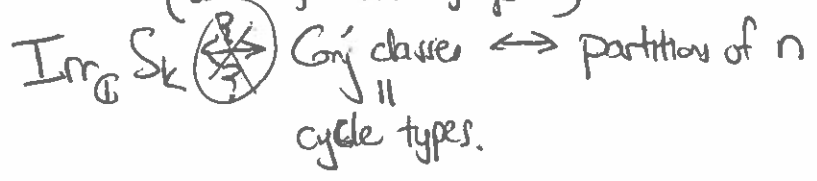 Irr_ℂ S_k <-?-> Conj classes <-> partitions of n
||
cycle types.